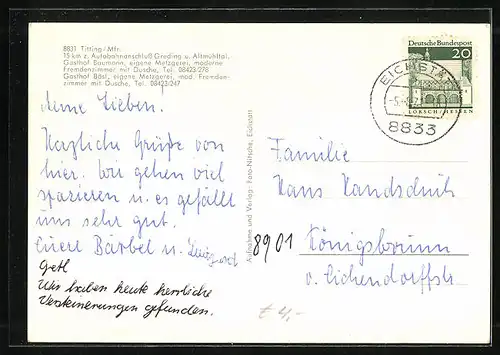 8831 Titting/Mfr.
15 km z. Autobahnanschluß Greding u. Altmühltal.
Gasthof Baumann, eigene Metzgerei, moderne
Fremdenzimmer mit Dusche, Tel. 08423/278
Gasthof Bösl, eigene Metzgerei, mod. Fremden-
zimmer mit Dusche, Tel. 08423-247
Meine Lieben.
Herzliche Grüße von
hier. Wir gehen viel
spazieren u. es gefällt
uns sehr gut.
Eure Bärbel u.
Getl
Wir haben heute herrliche
Versteinerungen gefunden.
Aufnahme und Verlag: Foto-Nitsche, Eichstätt
Deutsche Bundespost
20
LORSCH/HESSEN
8833
Familie
Hans
8901 Königsbrunn
v. Eichendorffstr.
€ 4,-